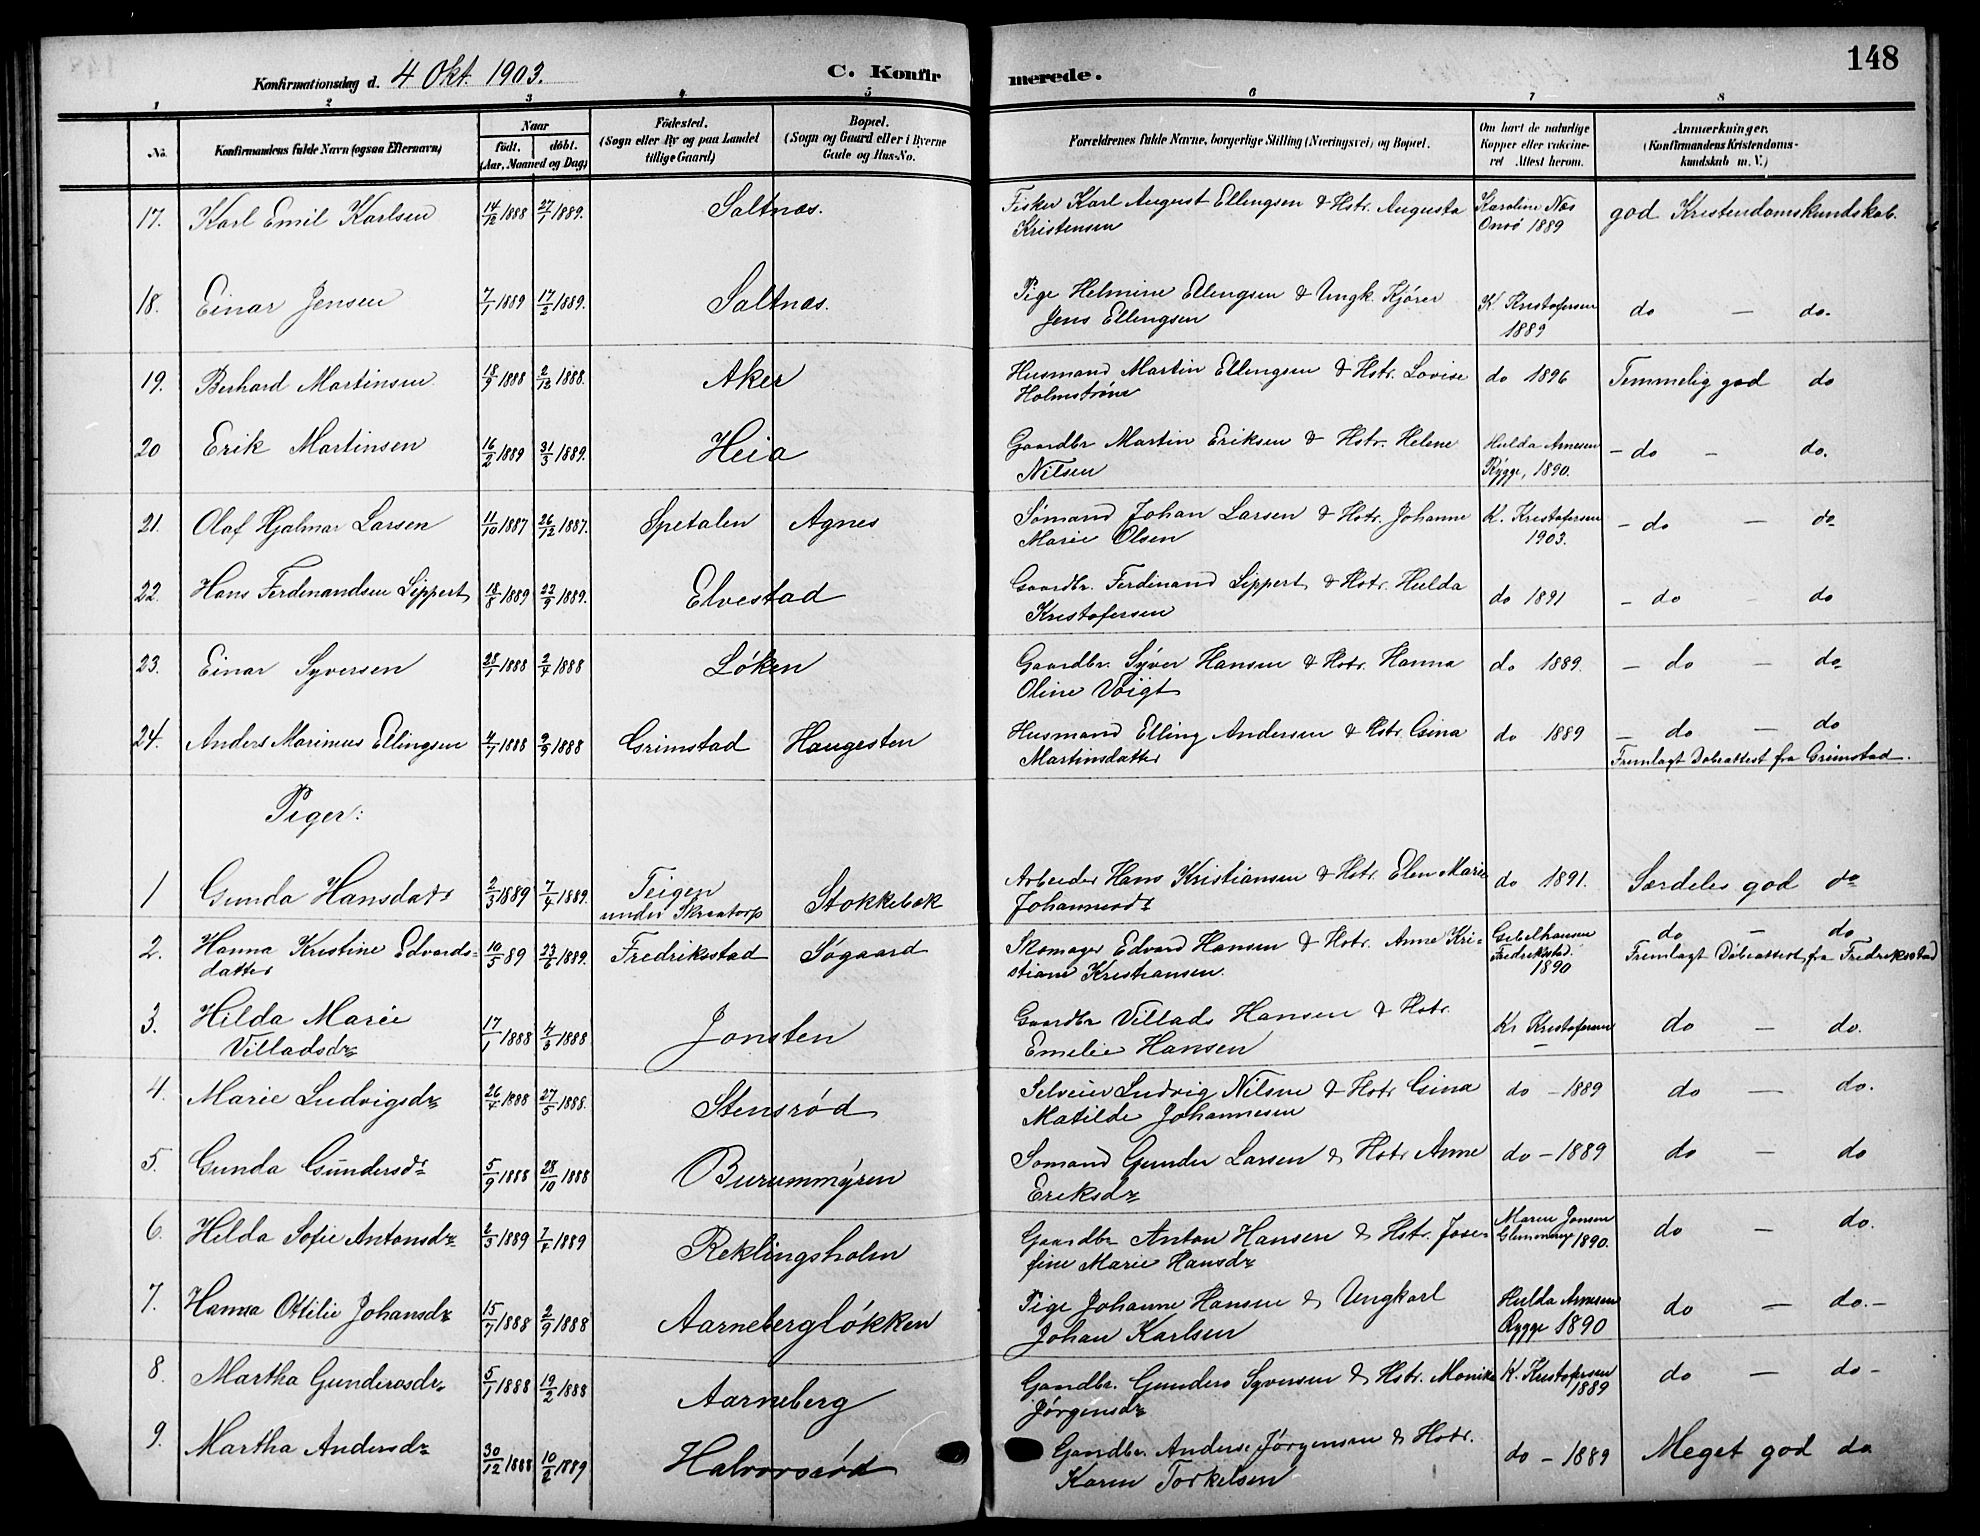 148
Konfirmationsdag d. 4 Okt. 1903.
C. Konfirmerede.
1 2 3 4 5 6 7 8
No. Konfirmandens fulde Navn (ogsaa Efternavn) Naar født, døbt. (Aar, Maaned og Dag) Fødested. (Sogn eller By og paa Landet tillige Gaard) Bopæl. (Sogn og Gaard eller i Byerne Gade og Hus-No. Forældrenes fulde Navne, borgerlige Stilling (Næringsvei) og Bopæl. Om havt de naturlige Kopper eller vakcineret Attest herom. Anmærkninger. (Konfirmandens Kristendomskundskab m. V.)
17. Karl Emil Karlsen 14/12 1888 27/1 1889. Saltnæs. Fisker Karl August Ellingsen & Hstr. Augusta Karoline Næs god Kristendomskundskab.
Kristensen Onsø 1889
18. Einar Jensen 7/1 1889 17/2 1889. Saltnæs. Pige Helmine Ellingsen & Ungk. Kjører K. Kristofersen do — do.
Jens Ellingsen 1889
19. Berhard Martinsen 18/9 1888 2/12 1888. Aker Husmand Martin Ellingsen & Hstr. Lovise do 1896 Temmelig god do
Holmstrøm
20 Erik Martinsen 16/2 1889 31/3 1889. Heia Gaardbr Martin Eriksen & Hstr. Helene Hulda Arnesen - do - do.
Nilsen Rygge, 1890.
21. Olaf Hjalmar Larsen 11/10 1887 26/12 1887. Spetalen Agnes Sømand Johan Larsen & Hstr. Johanne K. Kristofersen - do — do
Marie Olsen 1903.
22. Hans Ferdinandsen Lippert 18/8 1889 22/9 1889. Elvestad Gaardbr. Ferdinand Lippert & Hstr. Hulda do 1891 - do - do
Kristofersen
23. Einar Syversen 28/1 1888 2/4 1888 Løken Gaardbr. Syver Hansen & Hstr. Hanna do 1889. - do - do
Oline Voigt
24. Anders Marinius Ellingsen 4/1 1888 9/9 1888 Grimstad Haugesten Husmand Elling Andersen & Hstr. Gina do 1889 - do — do
Martinsdatter Fremlagt Døbeattest fra Grimstad.
Piger:
1 Gunda Hansdatr 2/3 1889 7/4 1889. Teigen Stokkebæk Arbeider Hans Kristiansen & Hstr. Elen Marie do 1891. Særdeles god do
under Skraatorp Johannesdr
2. Hanna Kristine Edvards- 10/5 89 23/6 1889. Fredriksstad Søgaard Skomager Edvard Hansen & Hstr. Anne Kri- Gebelhausen do — do
datter stiane Kristiansen. Fredriksstad. 1890 Fremlagt Døbeattest fra Fredriksstad
3. Hilda Marie 17/1 1888 4/3 1888 Jonsten Gaardbr Villads Hansen & Hstr. Kr Kristofersen do — do.
Villadsdr Emelie Hansen
4. Marie Ludvigsdr 26/4 1888 27/5 1888. Stensrød Selveier Ludvig Nilsen & Hstr Gina do - 1889 do — do.
Matilde Johannesen
5. Gunda Gundersdr 5/9 1888 28/10 1888 Burummyren Sømand Gunder Larsen & Hstr Anne do - 1889 do — do
Eriksdr
6. Hilda Sofie Antonsdr 2/3 1889 7/4 1889 Reklingsholm Gaardbr Anton Hansen & Hstr. Jose- Maren Jonsen do — do.
fine Marie Hansdr 1890.
7. Hanna Otilie Johansdr 15/7 1888 2/9 1888 Aarnebergløkken Pige Johanne Hansen & Ungkarl Hulda Arnesen do — do. -
Johan Karlsen Rygge 1890
8. Martha Gunderosdr. 5/1 1888 19/2 1888 Aarneberg Gaardbr. Gundero Syversen & Hstr. Monika K. Kristofersen do — do -
Jørgensdr 1889
9. Martha Andersdr 30/12 1888 10/2 1889 Halvorsrød Gaardbr. Anders Jørgensen & Hstr. do - 1889 Meget god do
Karen Torkelsen